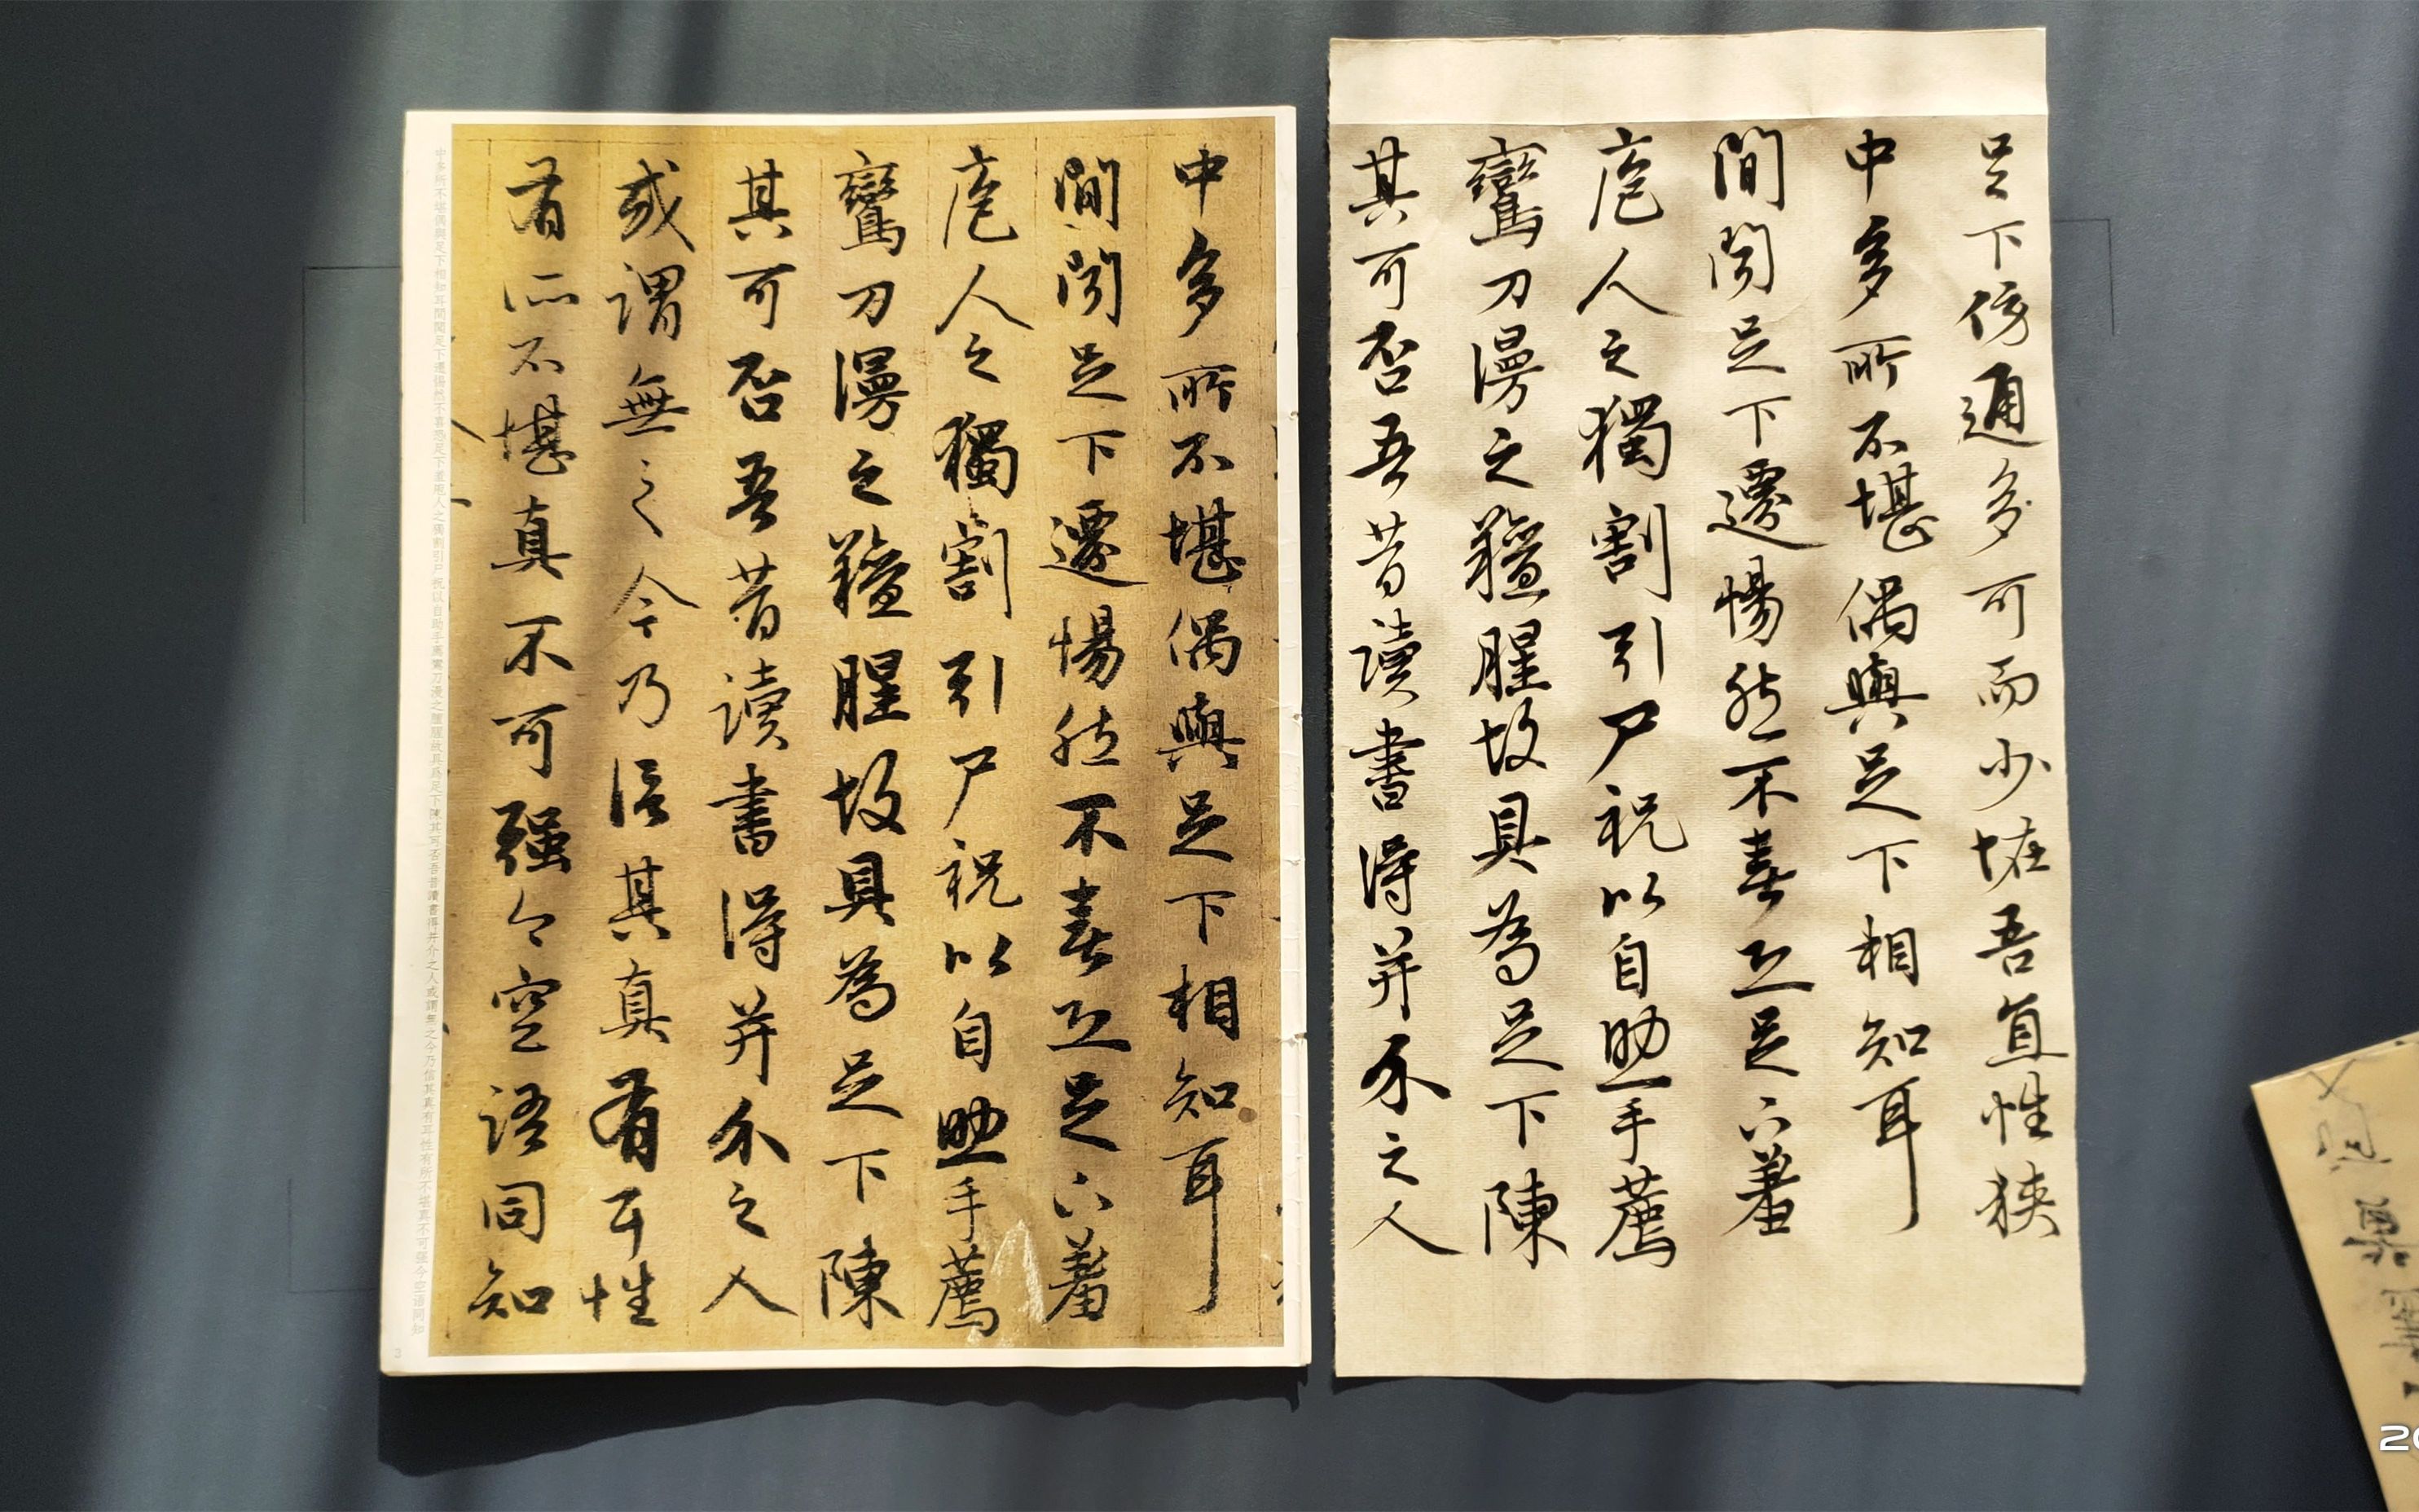 足下傍通多可而少怪吾直性狹
中多所不堪偶與足下相知耳
間聞足下遷惕然不喜恐足下羞
庖人之獨割引尸祝以自助手薦
鸞刀漫之羶腥故具為足下陳
其可否吾昔讀書得并介之人
中多所不堪偶與足下相知耳
間聞足下遷惕然不喜恐足下羞
庖人之獨割引尸祝以自助手薦
鸞刀漫之羶腥故具為足下陳
其可否吾昔讀書得并介之人
或謂無之今乃信其真有耳性
有所不堪真不可強今空語同知
中多所不堪偶與足下相知耳間聞足下遷惕然不喜恐足下羞庖人之獨割引尸祝以自助手薦鸞刀漫之羶腥故具為足下陳其可否吾昔讀書得并介之人或謂無之今乃信其真有耳性有所不堪真不可強今空語同知
3